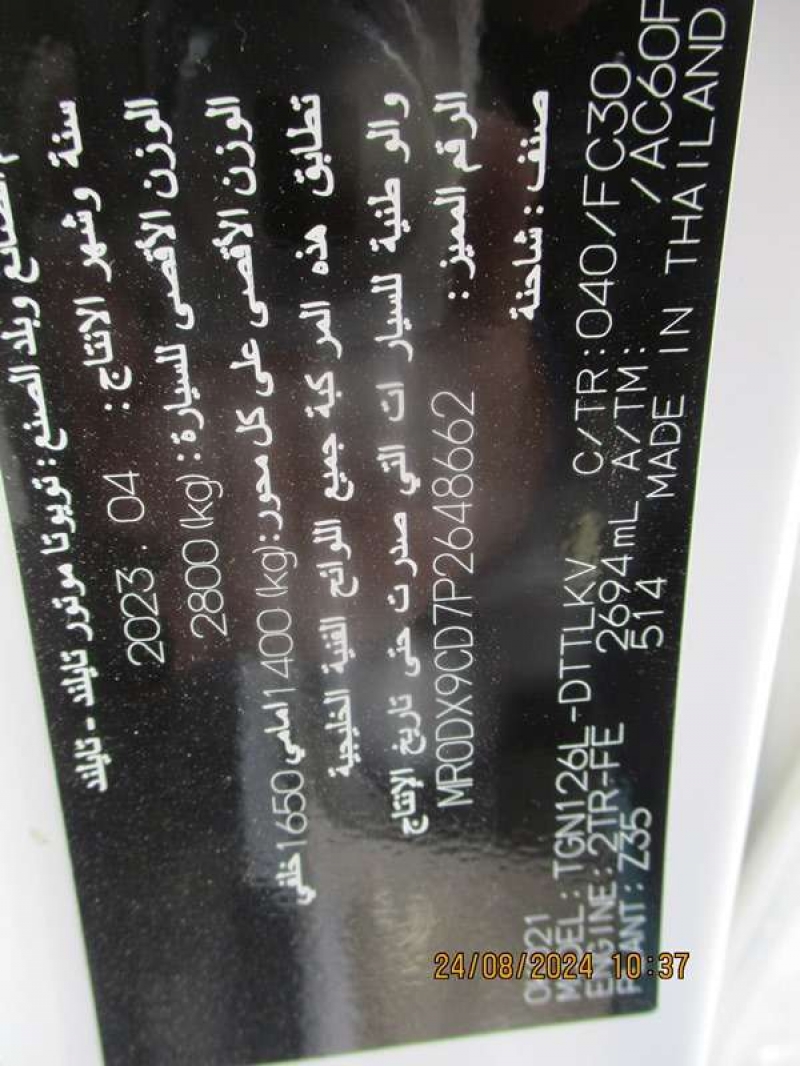 الصانع وبلد الصنع : تويوتا موتور تايلند - تايلند
سنة وشهر الانتاج : 2023 . 04
الوزن الأقصى للسيارة : 2800 (kg)
الوزن الأقصى على كل محور : (kg) 1400 امامي 1650 خلفي
تطابق هذه المركبة جميع اللوائح الفنية الخليجية
والوطنية للسيارات التي صدرت حتى تاريخ الإنتاج
الرقم المميز : MR0DX9CD7P2648662
صنف : شاحنة
MODEL : TGN126L-DTTLKV C/TR: 040/FC30
ENGINE: 2TR-FE 2694mL A/TM: /AC60F
PLANT: Z35 514 MADE IN THAILAND
24/08/2024 10:37